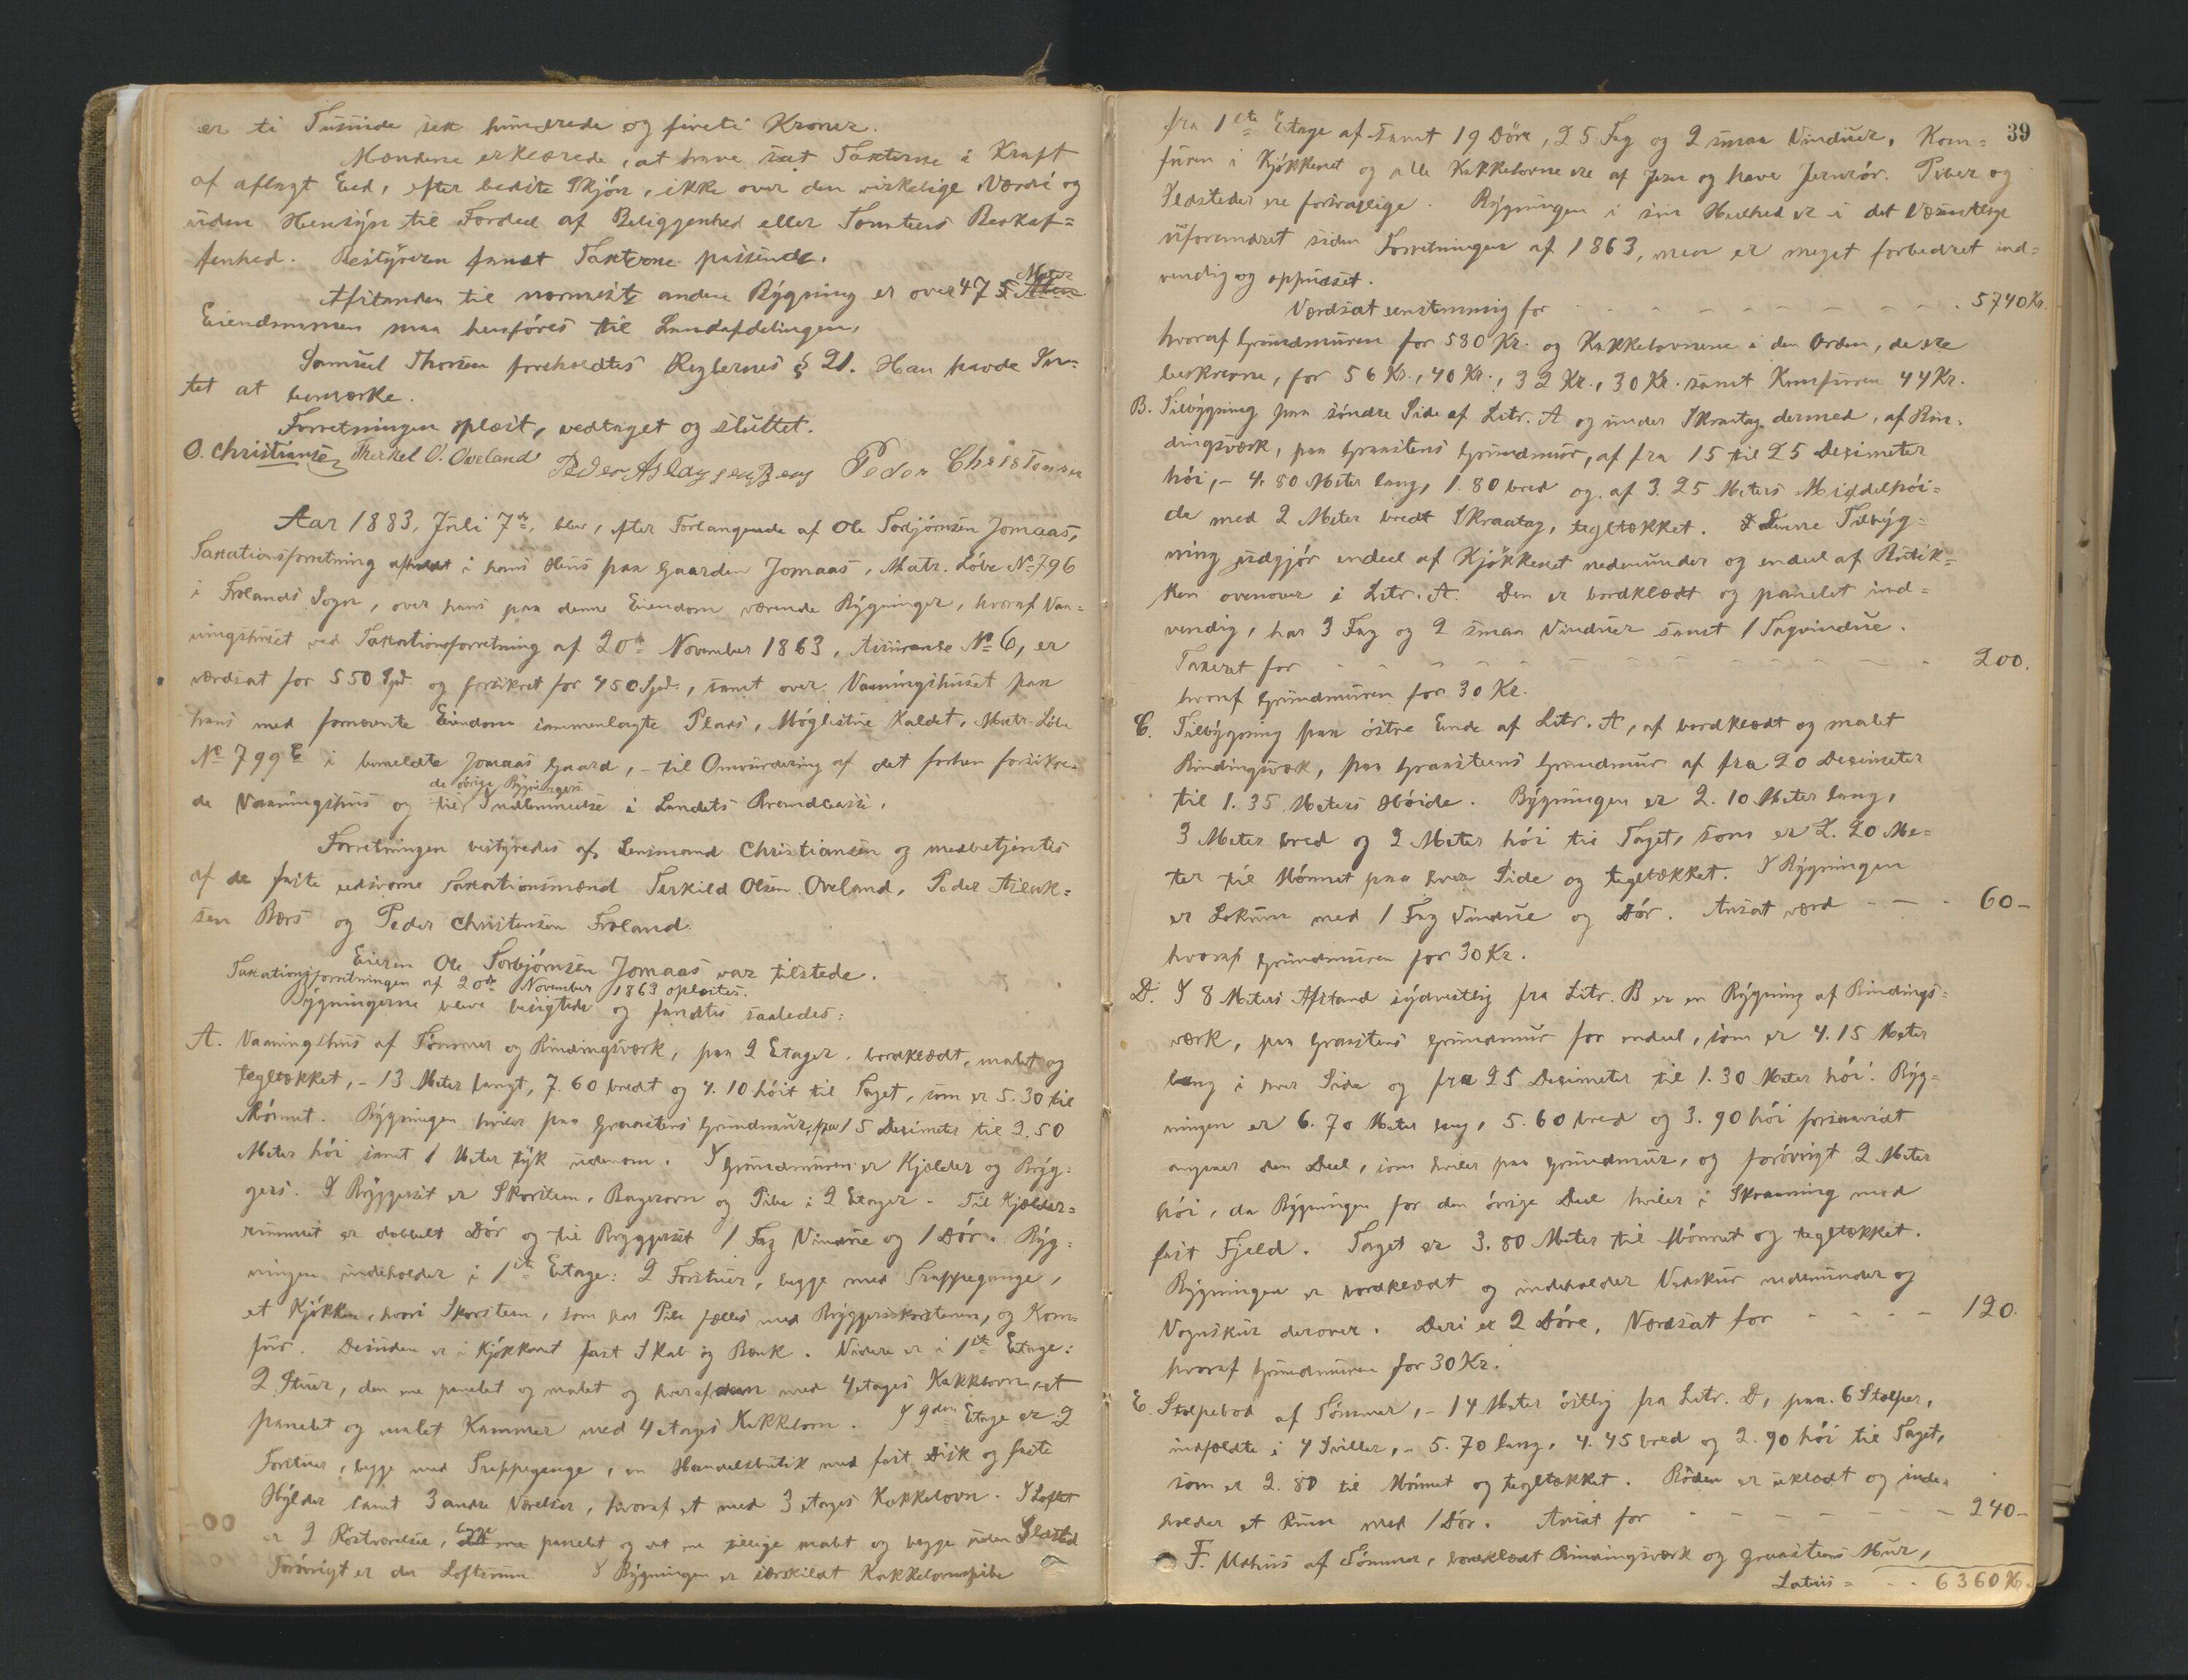 er ti Tusinde sex hundrede og fireti Kroner.
Mændene erklærede, at have sat Taxterne i Kraft
af aflagt Eed, efter bedste Skjön, ikke over den virkelige Værdi og
uden Hensyn til Fordeel af Beliggenhed eller Tomtens Beskaf=
fenhed. Bestyreren fandt Taxterne passende.
Afstanden til nærmeste anden Bygning er over 47 Meter
Eiendommen maa henföres til Landafdelingen.
Samuel Thorsen foreholdtes Reglernes § 21. Han havde In=
tet at bemærke.
Forretningen oplæst, vedtaget og sluttet.
O. Christiansen Therkel O. Oveland Peder Aslaysen Bers Peder Christensen
Aar 1883, Juli 7de, blev, efter Forlangende af Ole Torbjörnsen Jomaas,
Taxationsforretning afholdt i hans Huus paa Gaarden Jomaas, Matr. Löbe No 796
i Frolands Sogn, over hans paa denne Eiendom værende Bygninger, hvoraf Vaa=
ningshuset ved Taxationsforretning af 20de November 1863, Assurance No 6, er
værdsat for 550 Spd. og forsikret for 450 Spd., samt over Vaaningshuset paa
hans med fornævnte Eiendom sammenlagte Plads, Möglestue kaldet, Matr. Löbe
No 799 i bemeldte Jomaas Gaard, - til Omvurdering af det forhen forsikre=
de Vaaningshus og til de övrige Bygningers Indlemmelse i Landets Brandcasse.
Forretningen bestyredes af Lensmand Christiansen og medbetjentes
af de faste edsvorne Taxationsmænd Terkild Olsen Oveland, Peder Aslak=
sen Bærs og Peder Christensen Froland.
Eieren Ole Torbjörnsen Jomaas var tilstede.
Taxationsforretningen af 20de November 1863 oplæstes.
Bygningerne bleve besigtede og fandtes saaledes:
A. Vaaningshus af Tömmer og Bindingsværk, paa 2 Etager, bordklædt, malet og
tegltækket, - 13 Meter langt, 7.60 bredt og 4.10 höit til Taget, som er 5.30 til
Mönnet. Bygningen hviler paa Graastens Grundmur, fra 15 Decimeter til 2.50
Meter höi samt 1 Meter tyk udenom. I Grundmuren er Kjælder og Bryg=
gers. I Bryggerset er Skorsten, Bagerovn og Pibe i 2 Etager. Til Kjælder=
rummet er dobbelt Dör og til Bryggerset 1 Fag Vindue og 1 Dör. Byg=
ningen indeholder i 1ste Etage: 2 Forstuer, begge med Trappegange,
et Kjökken, hvori Skorsten, som har Pibe fælles med Bryggersskorstenen, og Kom=
fur. Desuden er i Kjökkenet fast Skab og Bænk. Videre er i 1ste Etage:
2 Stuer, den ene panelet og malet og hveraf med 4 etages Kakkelovn, et
panelet og malet Kammer med 4 etages Kakkelovn. I 2den Etage er 2
Forstuer, begge med Trappegange, en Handelsbutik med fast Disk og faste
Hylder samt 3 andre Værelser, hvoraf et med 3 etages Kakkelovn. I Loftet
er 2 Kvistværelser, begge panelet og det ene tillige malet og begge uden Ildsted
Forövrigt er der Loftsrum I Bygningen er særskildt Kakkelovnspibe
39
fra 1ste Etage af samt 19 Döre, 25 Fag og 2 smaa Vinduer. Kom=
furen i Kjökkenet og alle Kakkelovne ere af Jern og have Jernrör. Piber og
Ildsteder ere forsvarlige. Bygningen i sin Heelhed er i det Væsentlige
uforandret siden Forretningen af 1863, men er meget forbedret ind=
vendig og oppudset.
Værdsat eenstemmig for - - - 5740 Kr.
hvoraf Grundmuren for 580 Kr. og Kakkelovnene i den Orden, de ere
beskrevne, for 56 Kr., 40 Kr., 32 Kr., 30 Kr. samt Komfuren 44 Kr.
B. Tilbygning paa söndre Side af Litr. A og under Skraatag dermed, af Bin=
dingsværk, paa Graastens Grundmur, af fra 15 til 25 Decimeter
höi, - 4.80 Meter lang, 1.80 bred og af 3.25 Meters Middelhöi=
de med 2 Meter bredt Skraatag, tegltækket. Denne Tilbyg=
ning udgjör endeel af Kjökkenet nedenunder og endeel af Butik=
ken ovenover i Litr. A. Den er bordklædt og panelet ind=
vendig, har 3 Fag og 2 smaa Vinduer samt 1 Tagvindue.
Taxeret for - - - 200.
hvoraf Grundmuren for 30 Kr.
C. Tilbygning paa östre Ende af Litr. A, af bordklædt og malet
Bindingsværk, paa Graastens Grundmur af fra 20 Decimeter
til 1.35 Meters Höide. Bygningen er 2.10 Meter lang,
3 Meter bred og 2 Meter höi til Taget, som er 2.20 Me=
ter til Mönnet paa hver Side og tegltækket. I Bygningen
er Lokum med 1 Fag Vindue og Dör. Ansat værd - - - 60-
hvoraf Grundmuren for 30 Kr.
D. I 8 Meters Afstand sydvestlig fra Litr. B er en Bygning af Bindings=
værk, paa Graastens Grundmur for endeel, som er 4.15 Meter
lang i hver Side og fra 25 Decimeter til 1.30 Meter höi. Byg=
ningen er 6.70 Meter lang, 5.60 bred og 3.90 höi forsaavidt
angaaer den Deel, som hviler paa Grundmur, og forövrigt 2 Meter
höi, da Bygningen for den övrige Deel hviler i Skraaning med
fast Fjeld. Taget er 3.80 Meter til Mönnet og tegltækket.
Bygningen er bordklædt og indeholder Vedskur nedenunder og
Vognskur derover. Deri er 2 Döre. Værdsat for - - - 120.
hvoraf Grundmuren for 30 Kr.
E. Stolpebod af Tömmer, - 14 Meter östlig fra Litr. D, paa 6 Stolper,
indfældte i 4 Sviller, - 5.70 lang, 4.45 bred og 2.90 höi til Taget,
som er 2.80 til Mönnet og tegltækket. Boden er uklædt og inde=
holder et Rum med 1 Dör. Ansat for - - - 240-
F. Udhus af Tömmer, bordklædt Bindingsværk og Graastens Mur,
Latus = - - 6360 Kr.